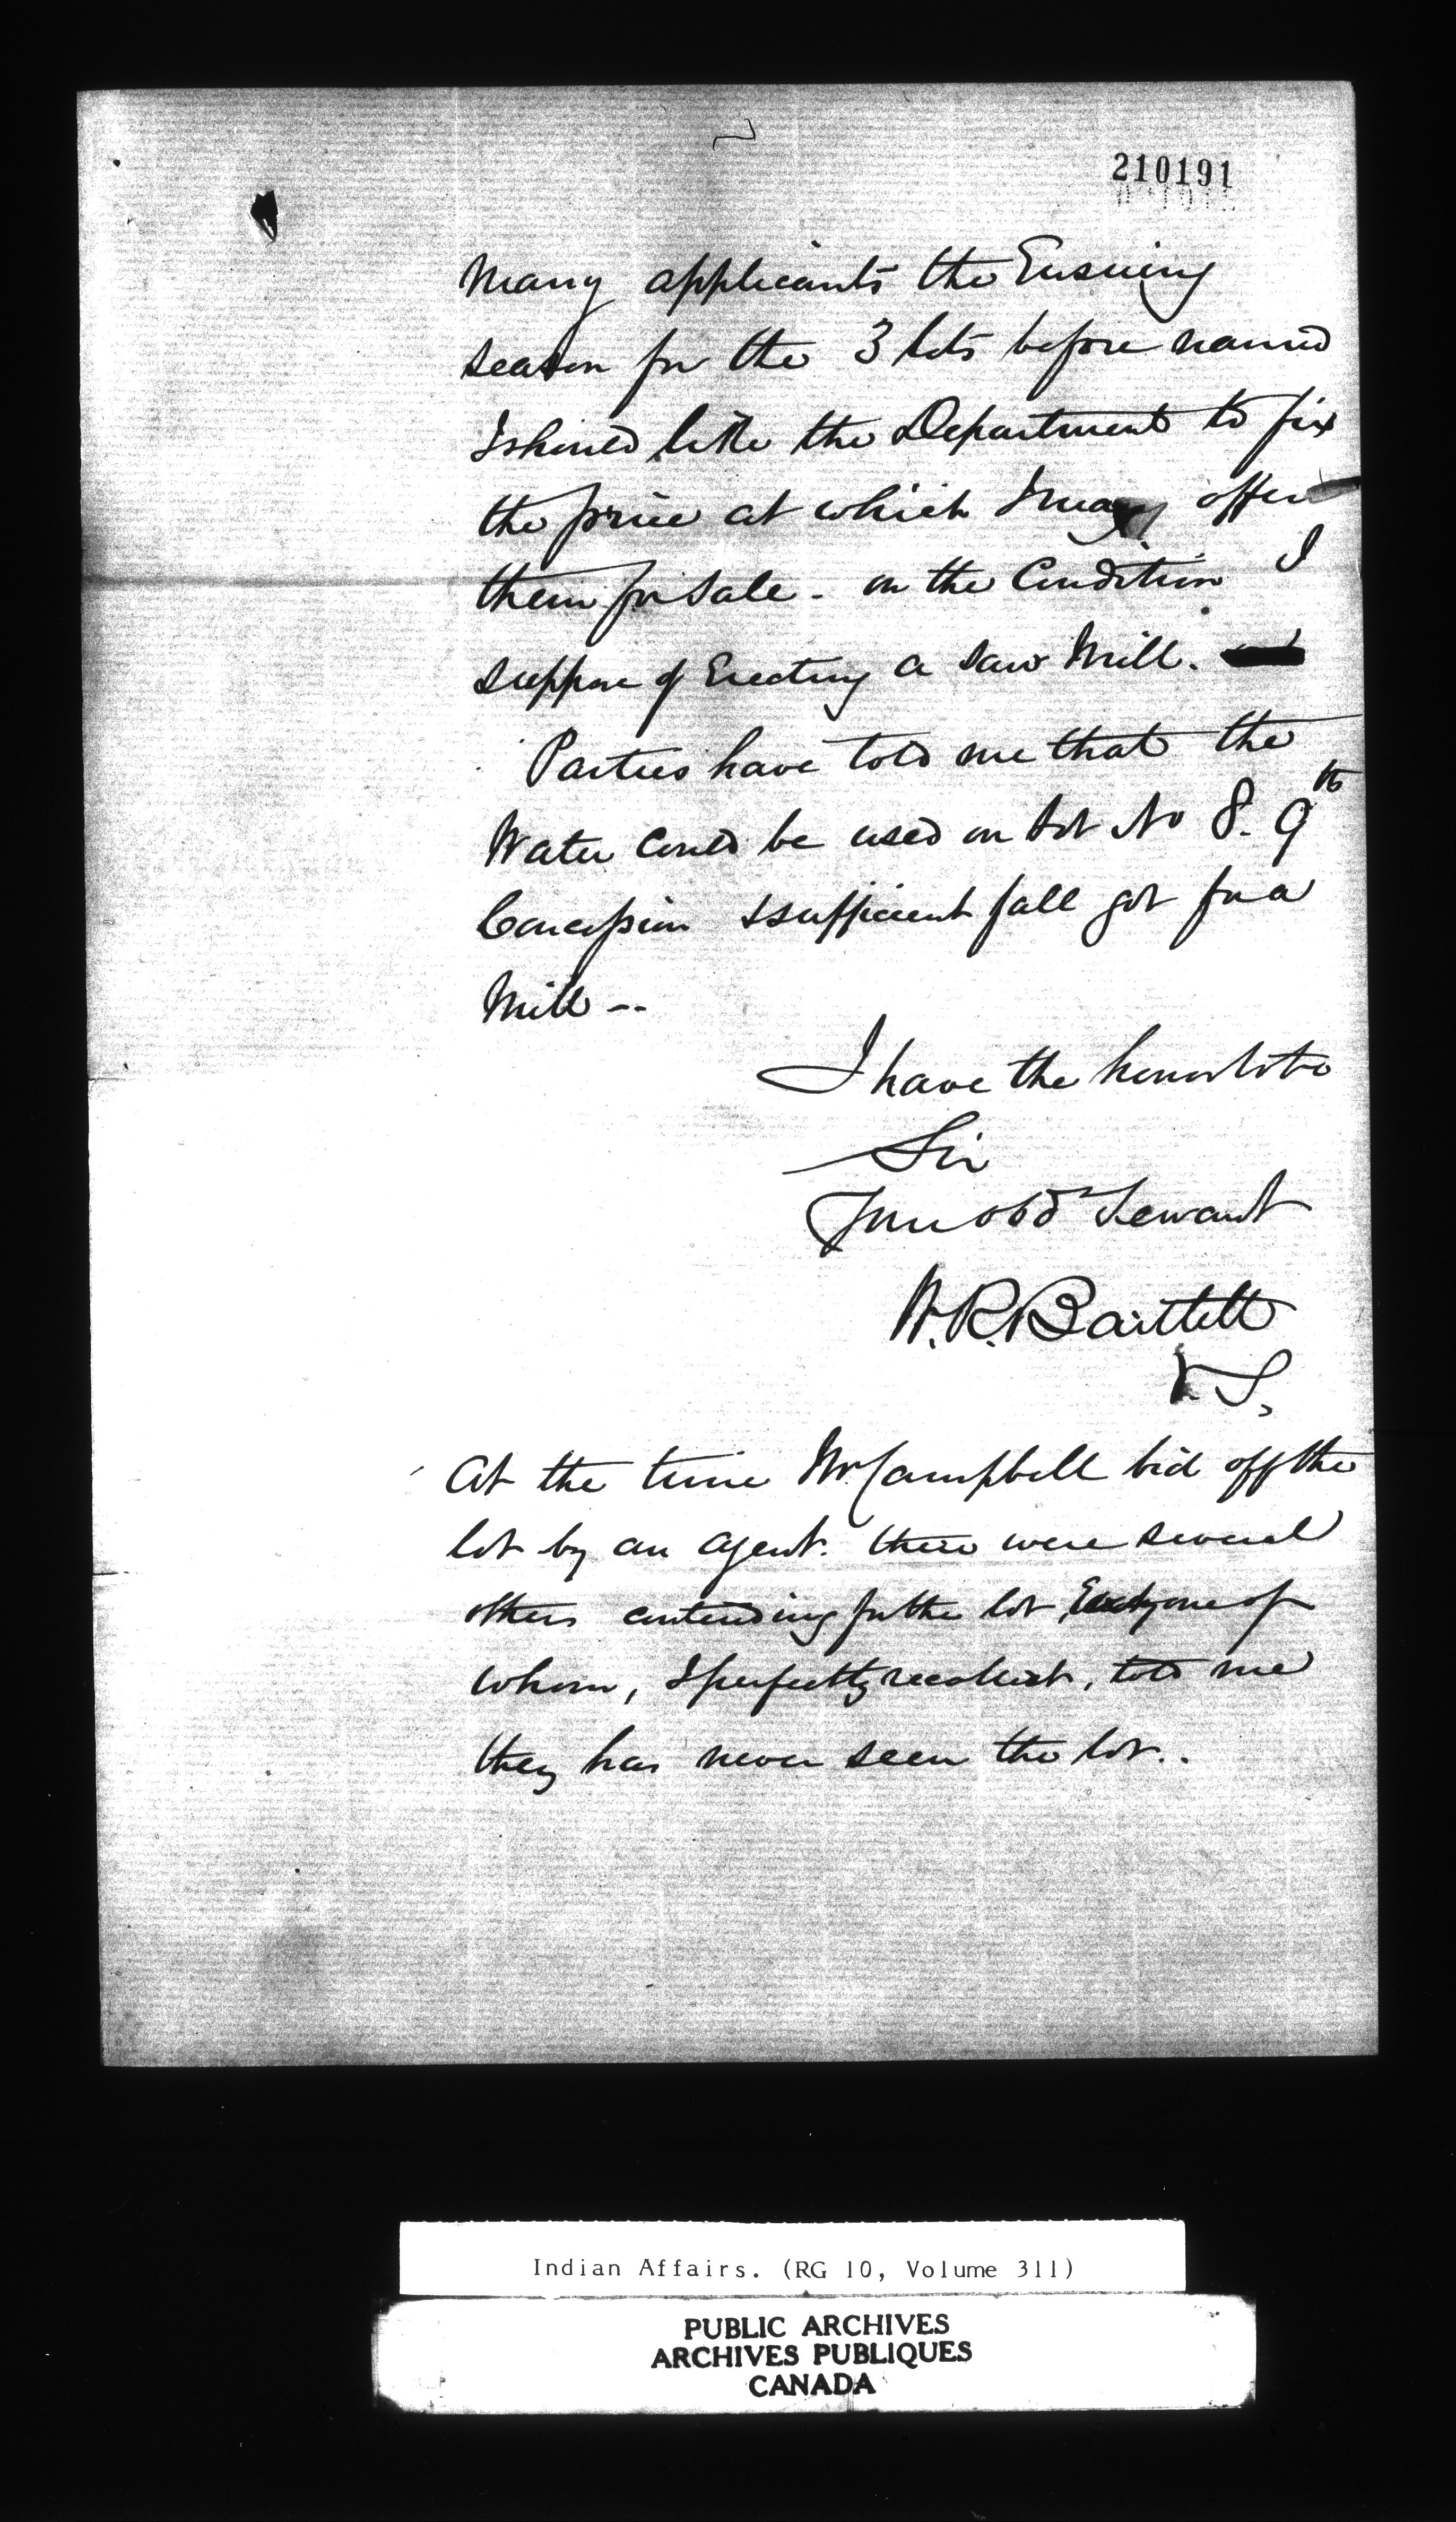 210191
Many applicants the Ensuing
season for the 3 lots before named
I should like the Department to fix
the price at which I may offer
them for sale - on the Condition I
suppose of Erecting a saw Mill.
Parties have told me that the
Water could be used on Lot No 8. 9th
Concession & sufficient fall got for a
Mill --
I have the honor to be
Sir
Your obdt Servant
W.R. Bartlett
V. S,
At the time Mr Campbell bid off the
lot by an agent. there were several
others contending for the lot, Every one of
whom, I perfectly recollect, told me
they has never seen the lot..
Indian Affairs. (RG 10, Volume 311)
PUBLIC ARCHIVES
ARCHIVES PUBLIQUES
CANADA